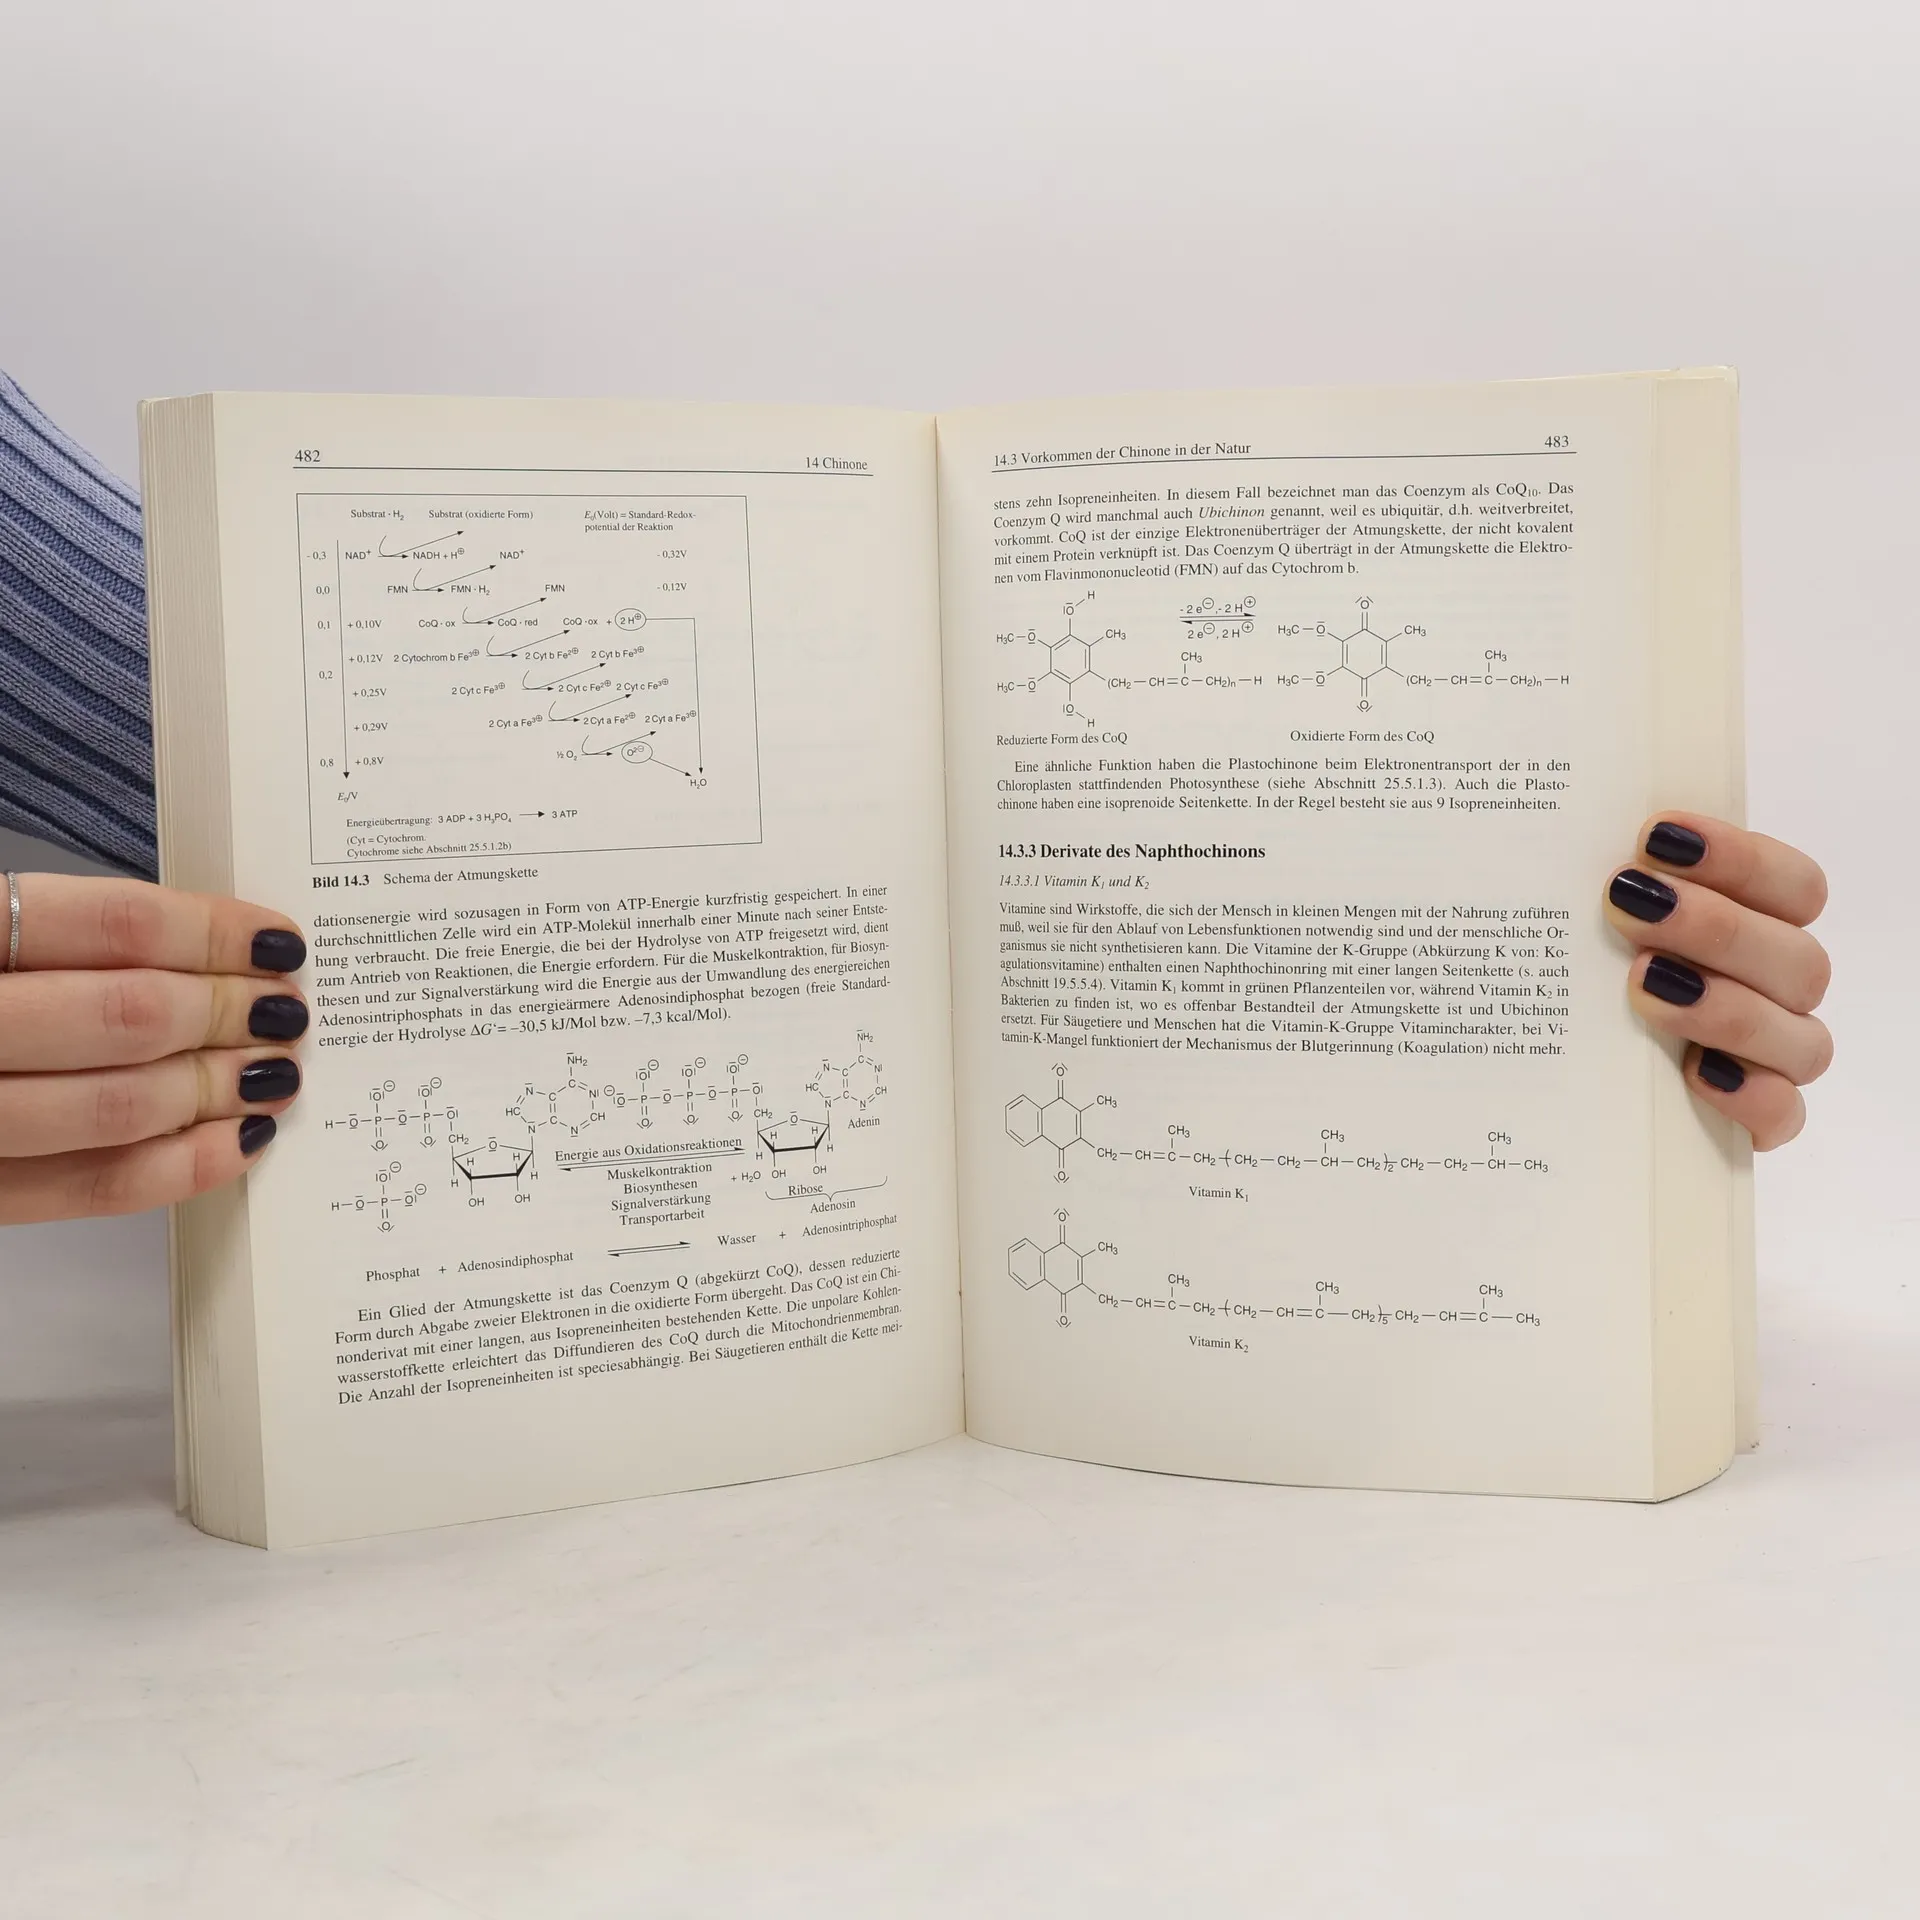 482
14 Chinone
Substrat · H₂ Substrat (oxidierte Form) E₀(Volt) = Standard-Redox-
potential der Reaktion
- 0,3 NAD⁺ NADH + H⊕ NAD⁺ - 0,32V
0,0 FMN FMN · H₂ FMN - 0,12V
0,1 + 0,10V CoQ · ox CoQ · red CoQ ·ox + 2 H⊕
+ 0,12V 2 Cytochrom b Fe³⊕ 2 Cyt b Fe²⊕ 2 Cyt b Fe³⊕
0,2
+ 0,25V 2 Cyt c Fe³⊕ 2 Cyt c Fe²⊕ 2 Cyt c Fe³⊕
+ 0,29V 2 Cyt a Fe³⊕ 2 Cyt a Fe²⊕ 2 Cyt a Fe³⊕
0,8 + 0,8V ½ O₂ O²⊖
H₂O
E₀/V
Energieübertragung: 3 ADP + 3 H₃PO₄ → 3 ATP
(Cyt = Cytochrom.
Cytochrome siehe Abschnitt 25.5.1.2b)
Bild 14.3 Schema der Atmungskette
dationsenergie wird sozusagen in Form von ATP-Energie kurzfristig gespeichert. In einer
durchschnittlichen Zelle wird ein ATP-Molekül innerhalb einer Minute nach seiner Entste-
hung verbraucht. Die freie Energie, die bei der Hydrolyse von ATP freigesetzt wird, dient
zum Antrieb von Reaktionen, die Energie erfordern. Für die Muskelkontraktion, für Biosyn-
thesen und zur Signalverstärkung wird die Energie aus der Umwandlung des energiereichen
Adenosintriphosphats in das energieärmere Adenosindiphosphat bezogen (freie Standard-
energie der Hydrolyse ΔG‘= –30,5 kJ/Mol bzw. –7,3 kcal/Mol).
NH₂ NH₂
H–O–P–O–P–O
CH₂
HC N C C N CH
O–P–O–P–O–P–O
CH₂
HC N C C N CH
Adenin
H H H H OH OH
Energie aus Oxidationsreaktionen
Muskelkontraktion
Biosynthesen
Signalverstärkung
Transportarbeit
+ H₂O
H H H H OH OH
Ribose
Adenosin
H–O–P–O
Phosphat + Adenosindiphosphat ⇌ Wasser + Adenosintriphosphat
Ein Glied der Atmungskette ist das Coenzym Q (abgekürzt CoQ), dessen reduzierte
Form durch Abgabe zweier Elektronen in die oxidierte Form übergeht. Das CoQ ist ein Chi-
nonderivat mit einer langen, aus Isopreneinheiten bestehenden Kette. Die unpolare Kohlen-
wasserstoffkette erleichtert das Diffundieren des CoQ durch die Mitochondrienmembran.
Die Anzahl der Isopreneinheiten ist speciesabhängig. Bei Säugetieren enthält die Kette mei-
14.3 Vorkommen der Chinone in der Natur
483
stens zehn Isopreneinheiten. In diesem Fall bezeichnet man das Coenzym als CoQ₁₀. Das
Coenzym Q wird manchmal auch Ubichinon genannt, weil es ubiquitär, d.h. weitverbreitet,
vorkommt. CoQ ist der einzige Elektronenüberträger der Atmungskette, der nicht kovalent
mit einem Protein verknüpft ist. Das Coenzym Q überträgt in der Atmungskette die Elektro-
nen vom Flavinmononucleotid (FMN) auf das Cytochrom b.
H
O
H₃C–O CH₃
H₃C–O (CH₂–CH=C–CH₂)ₙ–H
CH₃
O
H
- 2 e⊖,- 2 H⊕
2 e⊖, 2 H⊕
O
H₃C–O CH₃
H₃C–O (CH₂–CH=C–CH₂)ₙ–H
CH₃
O
Reduzierte Form des CoQ Oxidierte Form des CoQ
Eine ähnliche Funktion haben die Plastochinone beim Elektronentransport der in den
Chloroplasten stattfindenden Photosynthese (siehe Abschnitt 25.5.1.3). Auch die Plasto-
chinone haben eine isoprenoide Seitenkette. In der Regel besteht sie aus 9 Isopreneinheiten.
14.3.3 Derivate des Naphthochinons
14.3.3.1 Vitamin K₁ und K₂
Vitamine sind Wirkstoffe, die sich der Mensch in kleinen Mengen mit der Nahrung zuführen
muß, weil sie für den Ablauf von Lebensfunktionen notwendig sind und der menschliche Or-
ganismus sie nicht synthetisieren kann. Die Vitamine der K-Gruppe (Abkürzung K von: Ko-
agulationsvitamine) enthalten einen Naphthochinonring mit einer langen Seitenkette (s. auch
Abschnitt 19.5.5.4). Vitamin K₁ kommt in grünen Pflanzenteilen vor, während Vitamin K₂ in
Bakterien zu finden ist, wo es offenbar Bestandteil der Atmungskette ist und Ubichinon
ersetzt. Für Säugetiere und Menschen hat die Vitamin-K-Gruppe Vitamincharakter, bei Vi-
tamin-K-Mangel funktioniert der Mechanismus der Blutgerinnung (Koagulation) nicht mehr.
O
CH₃
CH₃ CH₃ CH₃
CH₂–CH=C–CH₂(CH₂–CH₂–CH–CH₂)₂CH₂–CH₂–CH–CH₃
O
Vitamin K₁
O
CH₃
CH₃ CH₃ CH₃
CH₂–CH=C–CH₂(CH₂–CH=C–CH₂)₅CH₂–CH=C–CH₃
O
Vitamin K₂